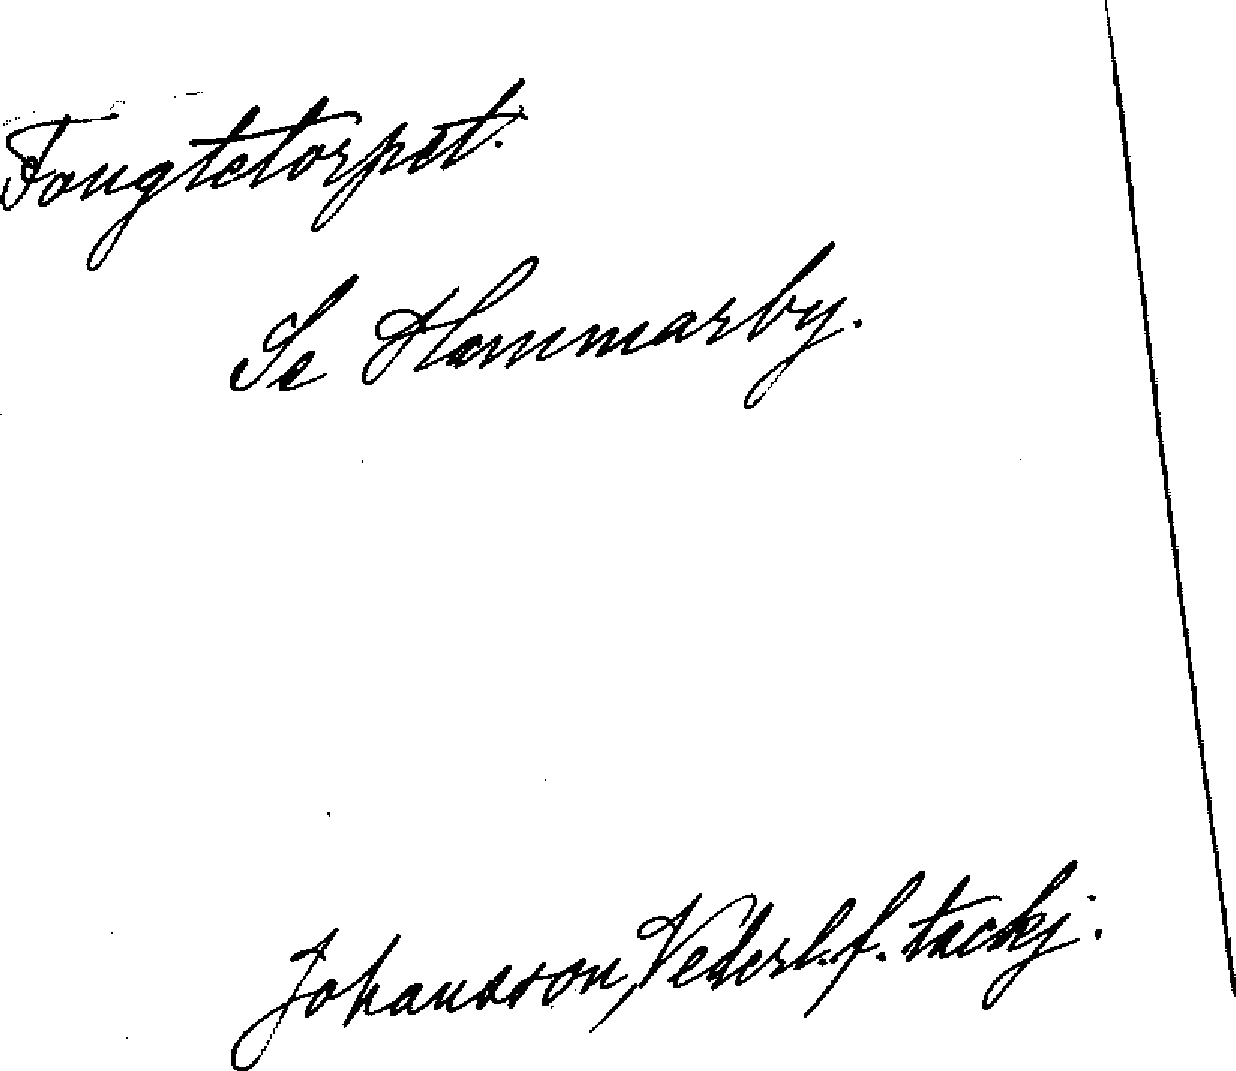 Fougtetorpet.
Se Hammarby.
Johansson, Vederl. f. tackj.